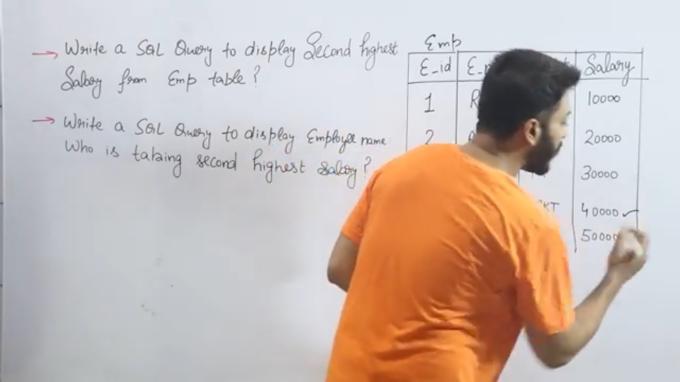 → Write a SQL Query to display Second highest
Salary from Emp table?
→ Write a SQL Query to display Employee name
Who is taking second highest salary?
Emp
E_id Salary
1 R 10000
2 20000
30000
KT 40000 ✓
50000